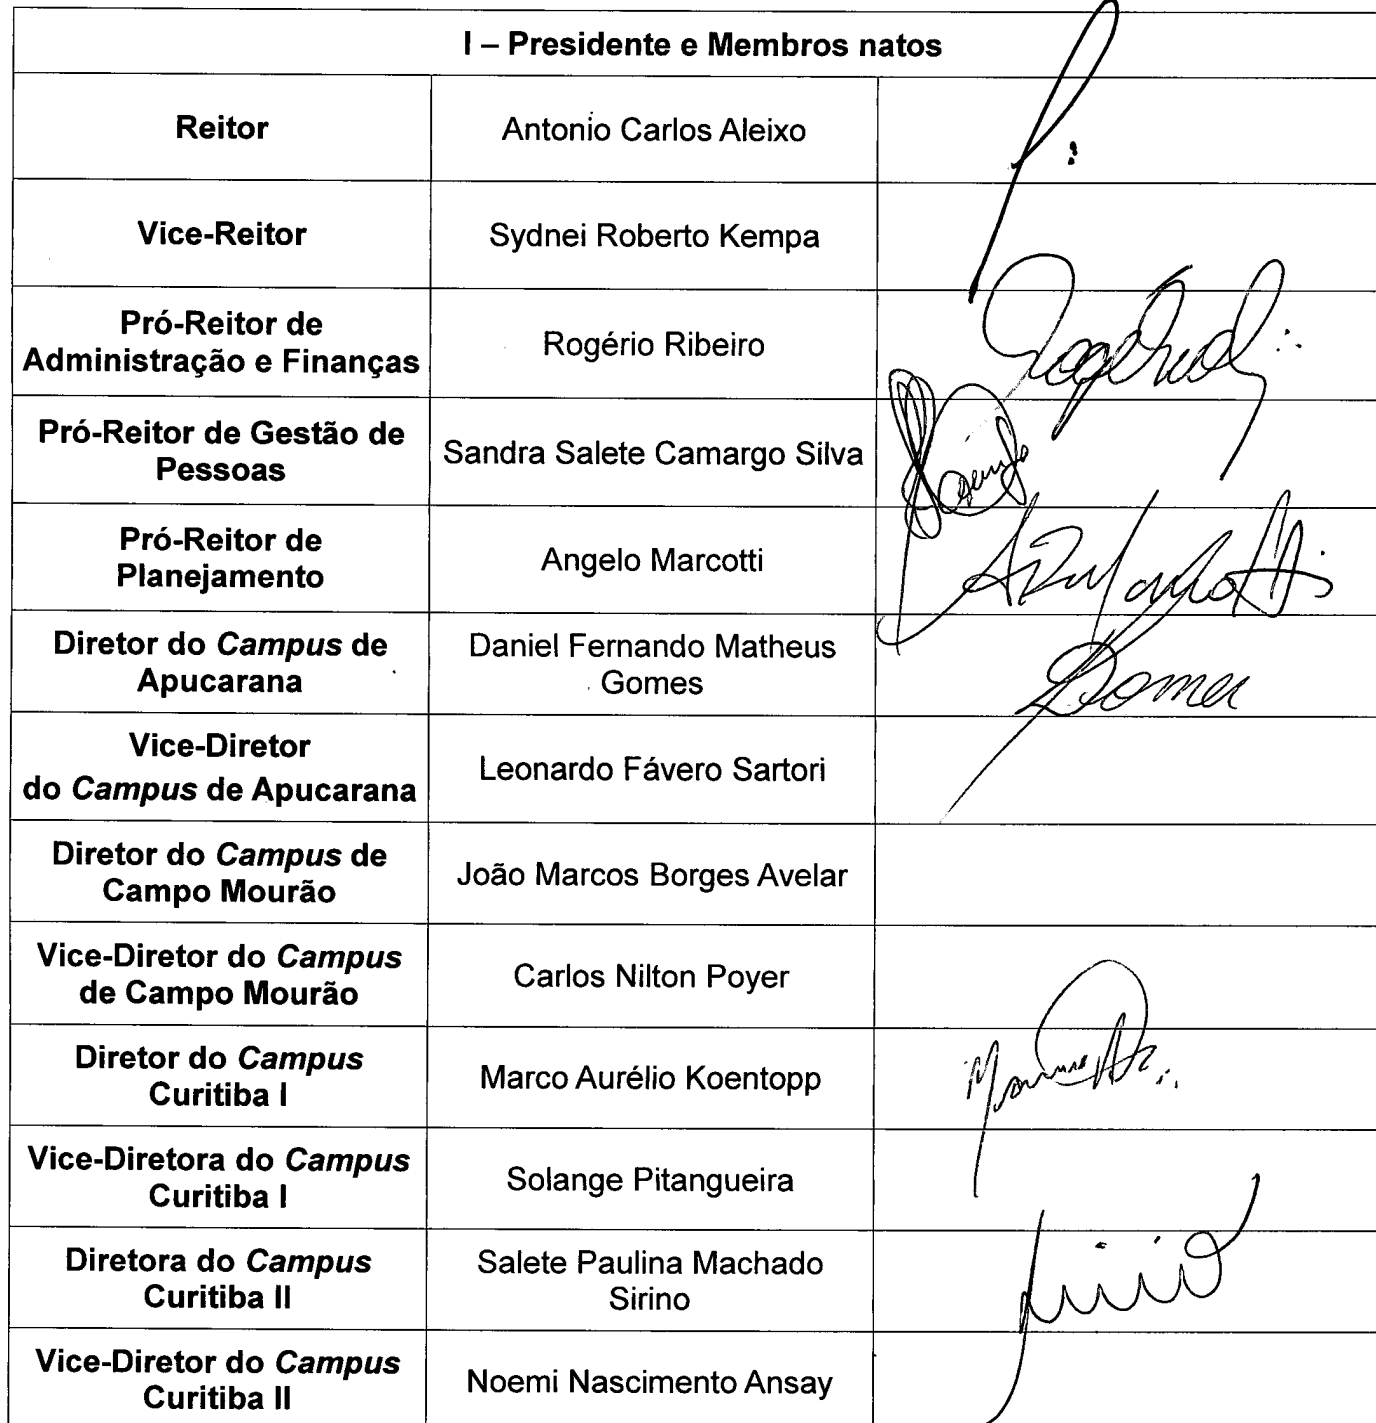 I – Presidente e Membros natos
Reitor
Antonio Carlos Aleixo
Vice-Reitor
Sydnei Roberto Kempa
Pró-Reitor de
Administração e Finanças
Rogério Ribeiro
Pró-Reitor de Gestão de
Pessoas
Sandra Salete Camargo Silva
Pró-Reitor de
Planejamento
Angelo Marcotti
Diretor do Campus de
Apucarana
Daniel Fernando Matheus
Gomes
Vice-Diretor
do Campus de Apucarana
Leonardo Fávero Sartori
Diretor do Campus de
Campo Mourão
João Marcos Borges Avelar
Vice-Diretor do Campus
de Campo Mourão
Carlos Nilton Poyer
Diretor do Campus
Curitiba I
Marco Aurélio Koentopp
Vice-Diretora do Campus
Curitiba I
Solange Pitangueira
Diretora do Campus
Curitiba II
Salete Paulina Machado
Sirino
Vice-Diretor do Campus
Curitiba II
Noemi Nascimento Ansay